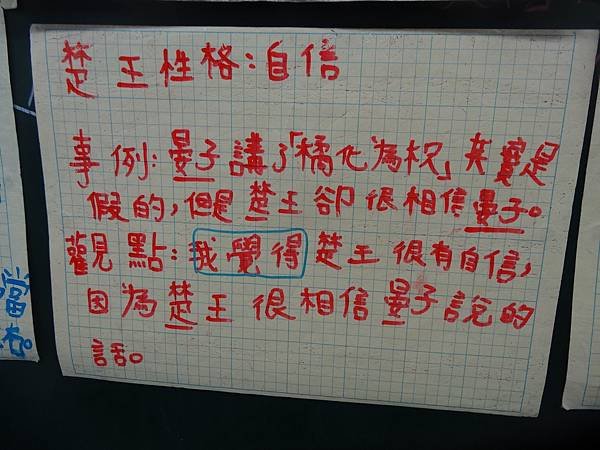 楚王性格:自信
事例:晏子講了「橘化為枳」其實是
假的,但是楚王卻很相信晏子。
觀點:我覺得楚王很有自信,
因為楚王很相信晏子說的
話。
當